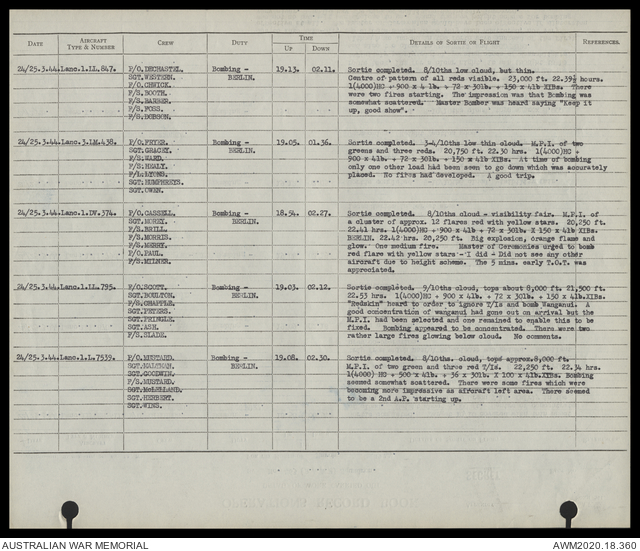 TIME
DATE AIRCRAFT TYPE & NUMBER CREW DUTY UP DOWN DETAILS OF SORTIE OR FLIGHT REFERENCES.
24/25.3.44. Lanc.1.LL.847. P/O.DECHASTEL. Bombing - 19.13. 02.11. Sortie completed. 8/10ths low cloud, but thin.
SGT.WESTERN. BERLIN. Centre of pattern of all reds visible. 23,000 ft. 22.39½ hours.
F/O.CHWICK. 1(4000)HC + 900 x 4 lb. + 72 x 30lb + 150 x 4lb XIBs. There
F/S.BOOTH. were two fires starting. The impression was that Bombing was
F/S.BARBER. somewhat scattered. Master Bomber was heard saying "Keep it
F/S.FOSS. up, good show".
F/S.DOBSON.
24/25.3.44. Lanc.3.LM.438. P/O.FRYER. Bombing - 19.05. 01.36. Sortie completed. 3-4/10ths low thin cloud. M.P.I. of two
SGT.GRACEY. BERLIN. greens and three reds. 20,750 ft. 22.30 hrs. 1(4000)HC +
F/S.WARD. 900 x 4lb. + 72 x 30lb + 150 x 4lb XIBs. At time of bombing
F/S.HEALY. only one other load had been seen to go down which was accurately
F/L.LYONS. placed. No fires had developed. A good trip.
SGT.HUMPHREYS.
SGT.OWEN.
24/25.3.44. Lanc.1.DV.374. F/O.CASSELL. Bombing - 18.54. 02.27. Sortie completed. 8/10ths cloud - visibility fair. M.P.I. of
SGT.MOREY. BERLIN. a cluster of approx. 12 flares red with yellow stars. 20,250 ft.
F/S.BRILL. 22.41 hrs. 1(4000)HC + 900 x 4lb + 72 x 30lb X 150 x 4lb XIBs.
F/S.MORRIS. BERLIN. 22.42 hrs. 20,250 ft. Big explosion, orange flame and
F/S.MERRY. glow. One medium fire. Master of Ceremonies urged to bomb
F/O.PAUL. red flare with yellow stars - I did - Did not see any other
F/S.MILNER. aircraft due to height scheme. The 5 mins. early T.O.T. was
appreciated.
24/25.3.44. Lanc.1.LL.795. P/O.SCOTT. Bombing - 19.03. 02.12. Sortie completed. 9/10ths cloud, tops about 8,000 ft. 21,500 ft.
SGT.BOULTON. BERLIN. 22.53 hrs. 1(4000)HC + 900 x 4lb. + 72 x 30lb. + 150 x 4lb.XIBs.
F/S.CHAPPLE. "Redskin" heard to order to ignore T/Is and bomb Wanganui. A
SGT.PETERS. good concentration of wanganui had gone out on arrival but the
SGT.PRINGLE. M.P.I. had been selected and one remained to enable this to be
SGT.ASH. fixed. Bombing appeared to be concentrated. There were two
F/S.SLADE. rather large fires glowing below cloud. No comments.
24/25.3.44. Lanc.1.L.7539. F/O.MUSTARD. Bombing - 19.08. 02.30. Sortie completed. 8/10ths. cloud, tops approx.8,000 ft.
SGT.MALTMAN. BERLIN. M.P.I. of two green and three red T/Is. 22,250 ft. 22.34 hrs.
SGT.GOODWIN. 1(4000) HC + 500 x 4lb. + 36 x 30lb. X 100 x 4lb.XIBs. Bombing
F/S.MUSTARD. seemed somewhat scattered. There were some fires which were
SGT.McLELLAND. becoming more impressive as aircraft left area. There seemed
SGT.HERBERT. to be a 2nd A.P. starting up.
SGT.WING.
AUSTRALIAN WAR MEMORIAL AWM2020.18.360